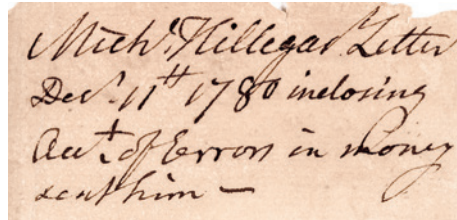 Mich.l Hillegas Letter
Dec.r 11th 1780 inclosing
Acc.t of Errors in money
sent him —